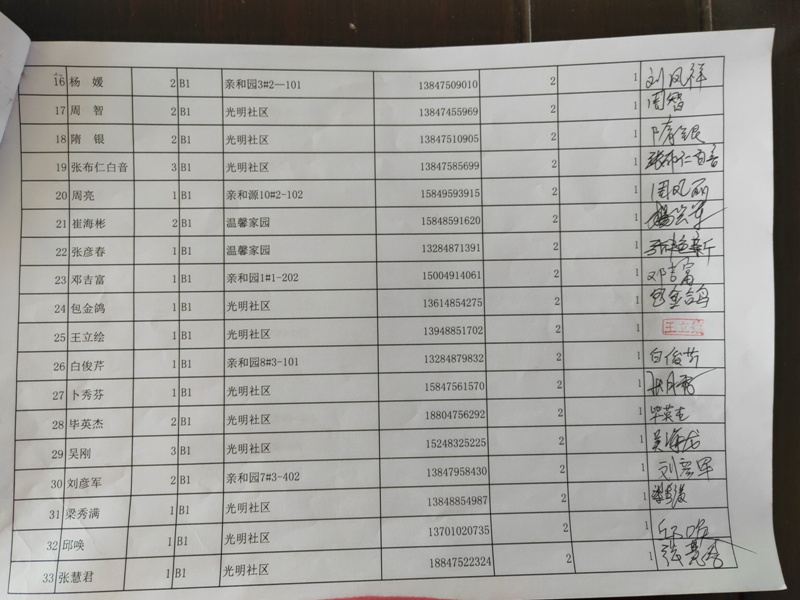 16 杨 媛 2 B1 亲和园3#2—101 13847509010 2 1 刘凤祥
17 周 智 2 B1 光明社区 13847455969 2 1 周智
18 隋 银 2 B1 光明社区 13847510905 2 1 隋银
19 张布仁白音 3 B1 光明社区 13847585699 2 1 张布仁白音
20 周亮 1 B1 亲和源10#2-102 15849593915 2 1 周凤丽
21 崔海彬 2 B1 温馨家园 15848591620 2 1
22 张彦春 1 B1 温馨家园 13284871391 2 1
23 邓吉富 1 B1 亲和园1#1-202 15004914061 2 1 邓吉富
24 包金鸽 1 B1 光明社区 13614854275 2 1 包金鸽
25 王立绘 1 B1 光明社区 13948851702 2 1
26 白俊芹 1 B1 亲和园8#3-101 13284879832 2 1 白俊芹
27 卜秀芬 1 B1 光明社区 15847561570 2 1
28 毕英杰 2 B1 光明社区 18804756292 2 1 毕英杰
29 吴刚 3 B1 光明社区 15248325225 2 1 吴海龙
30 刘彦军 2 B1 亲和园7#3-402 13847958430 2 1 刘彦军
31 梁秀满 1 B1 光明社区 13848854987 2 1
32 邱唤 1 B1 光明社区 13701020735 2 1
33 张慧君 1 B1 光明社区 18847522324 2 1